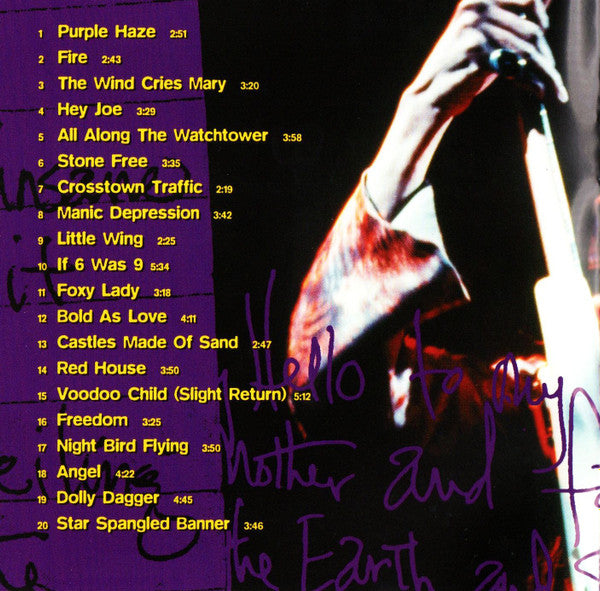 1 Purple Haze 2:51
2 Fire 2:43
3 The Wind Cries Mary 3:20
4 Hey Joe 3:29
5 All Along The Watchtower 3:58
6 Stone Free 3:35
7 Crosstown Traffic 2:19
8 Manic Depression 3:42
9 Little Wing 2:25
10 If 6 Was 9 5:34
11 Foxy Lady 3:18
12 Bold As Love 4:11
13 Castles Made Of Sand 2:47
14 Red House 3:50
15 Voodoo Child (Slight Return) 5:12
16 Freedom 3:25
17 Night Bird Flying 3:50
18 Angel 4:22
19 Dolly Dagger 4:45
20 Star Spangled Banner 3:46
insane
it
Hello to my
Mother and
the Earth and